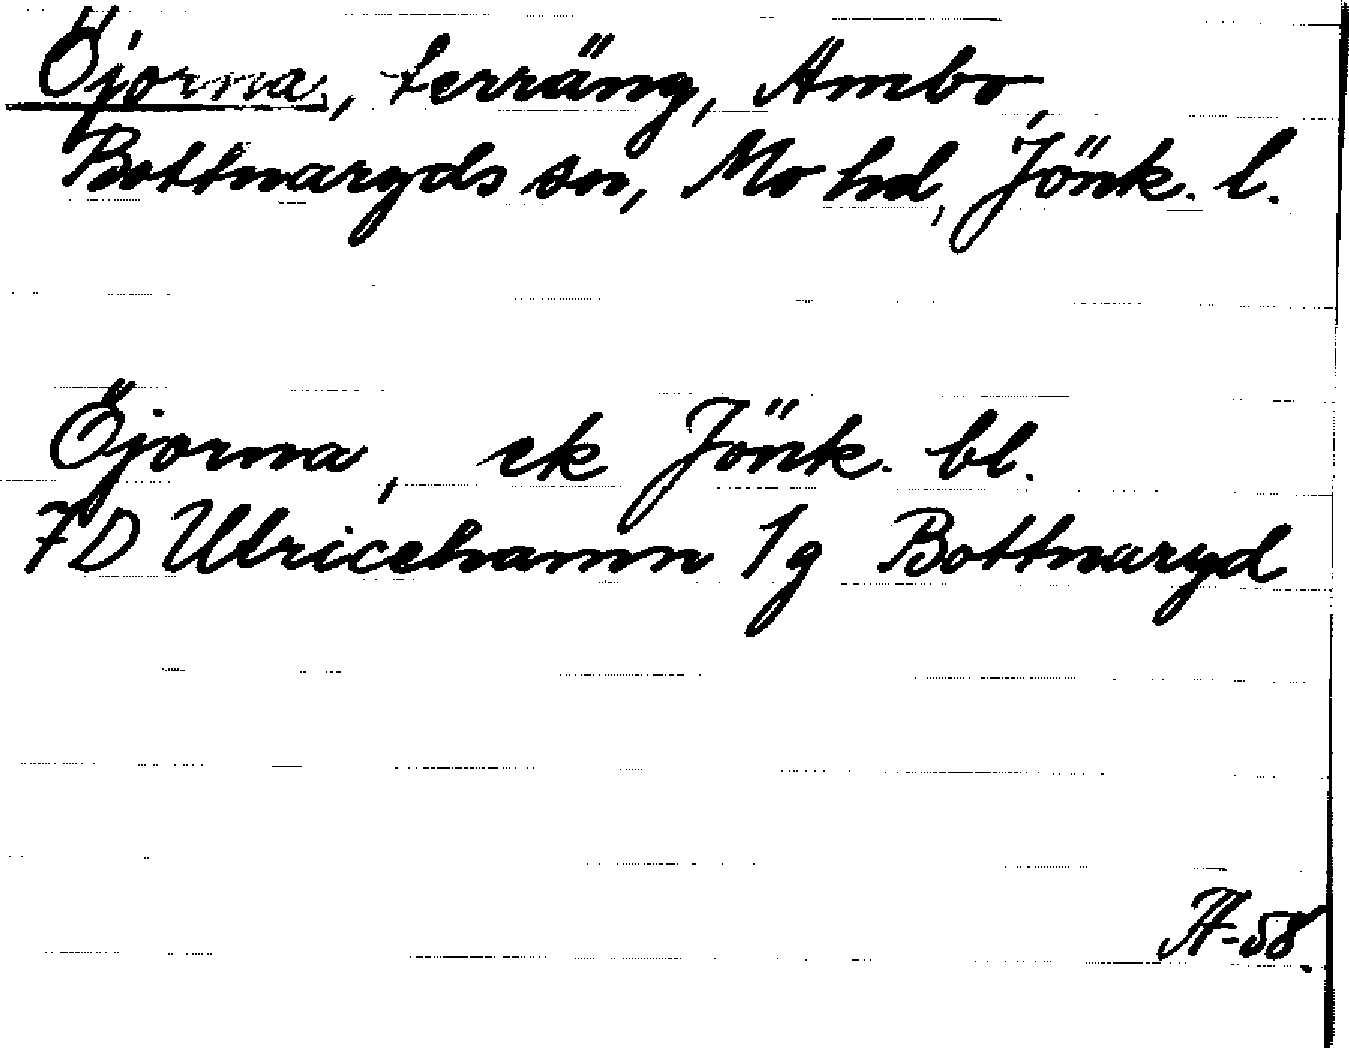 Öjorna, terräng, Ämbo,
Bottnaryds sn, Mo hd, Jönk. l.
Öjorna, ek Jönk. bl.
7D Ulricehamn 1g Bottnaryd